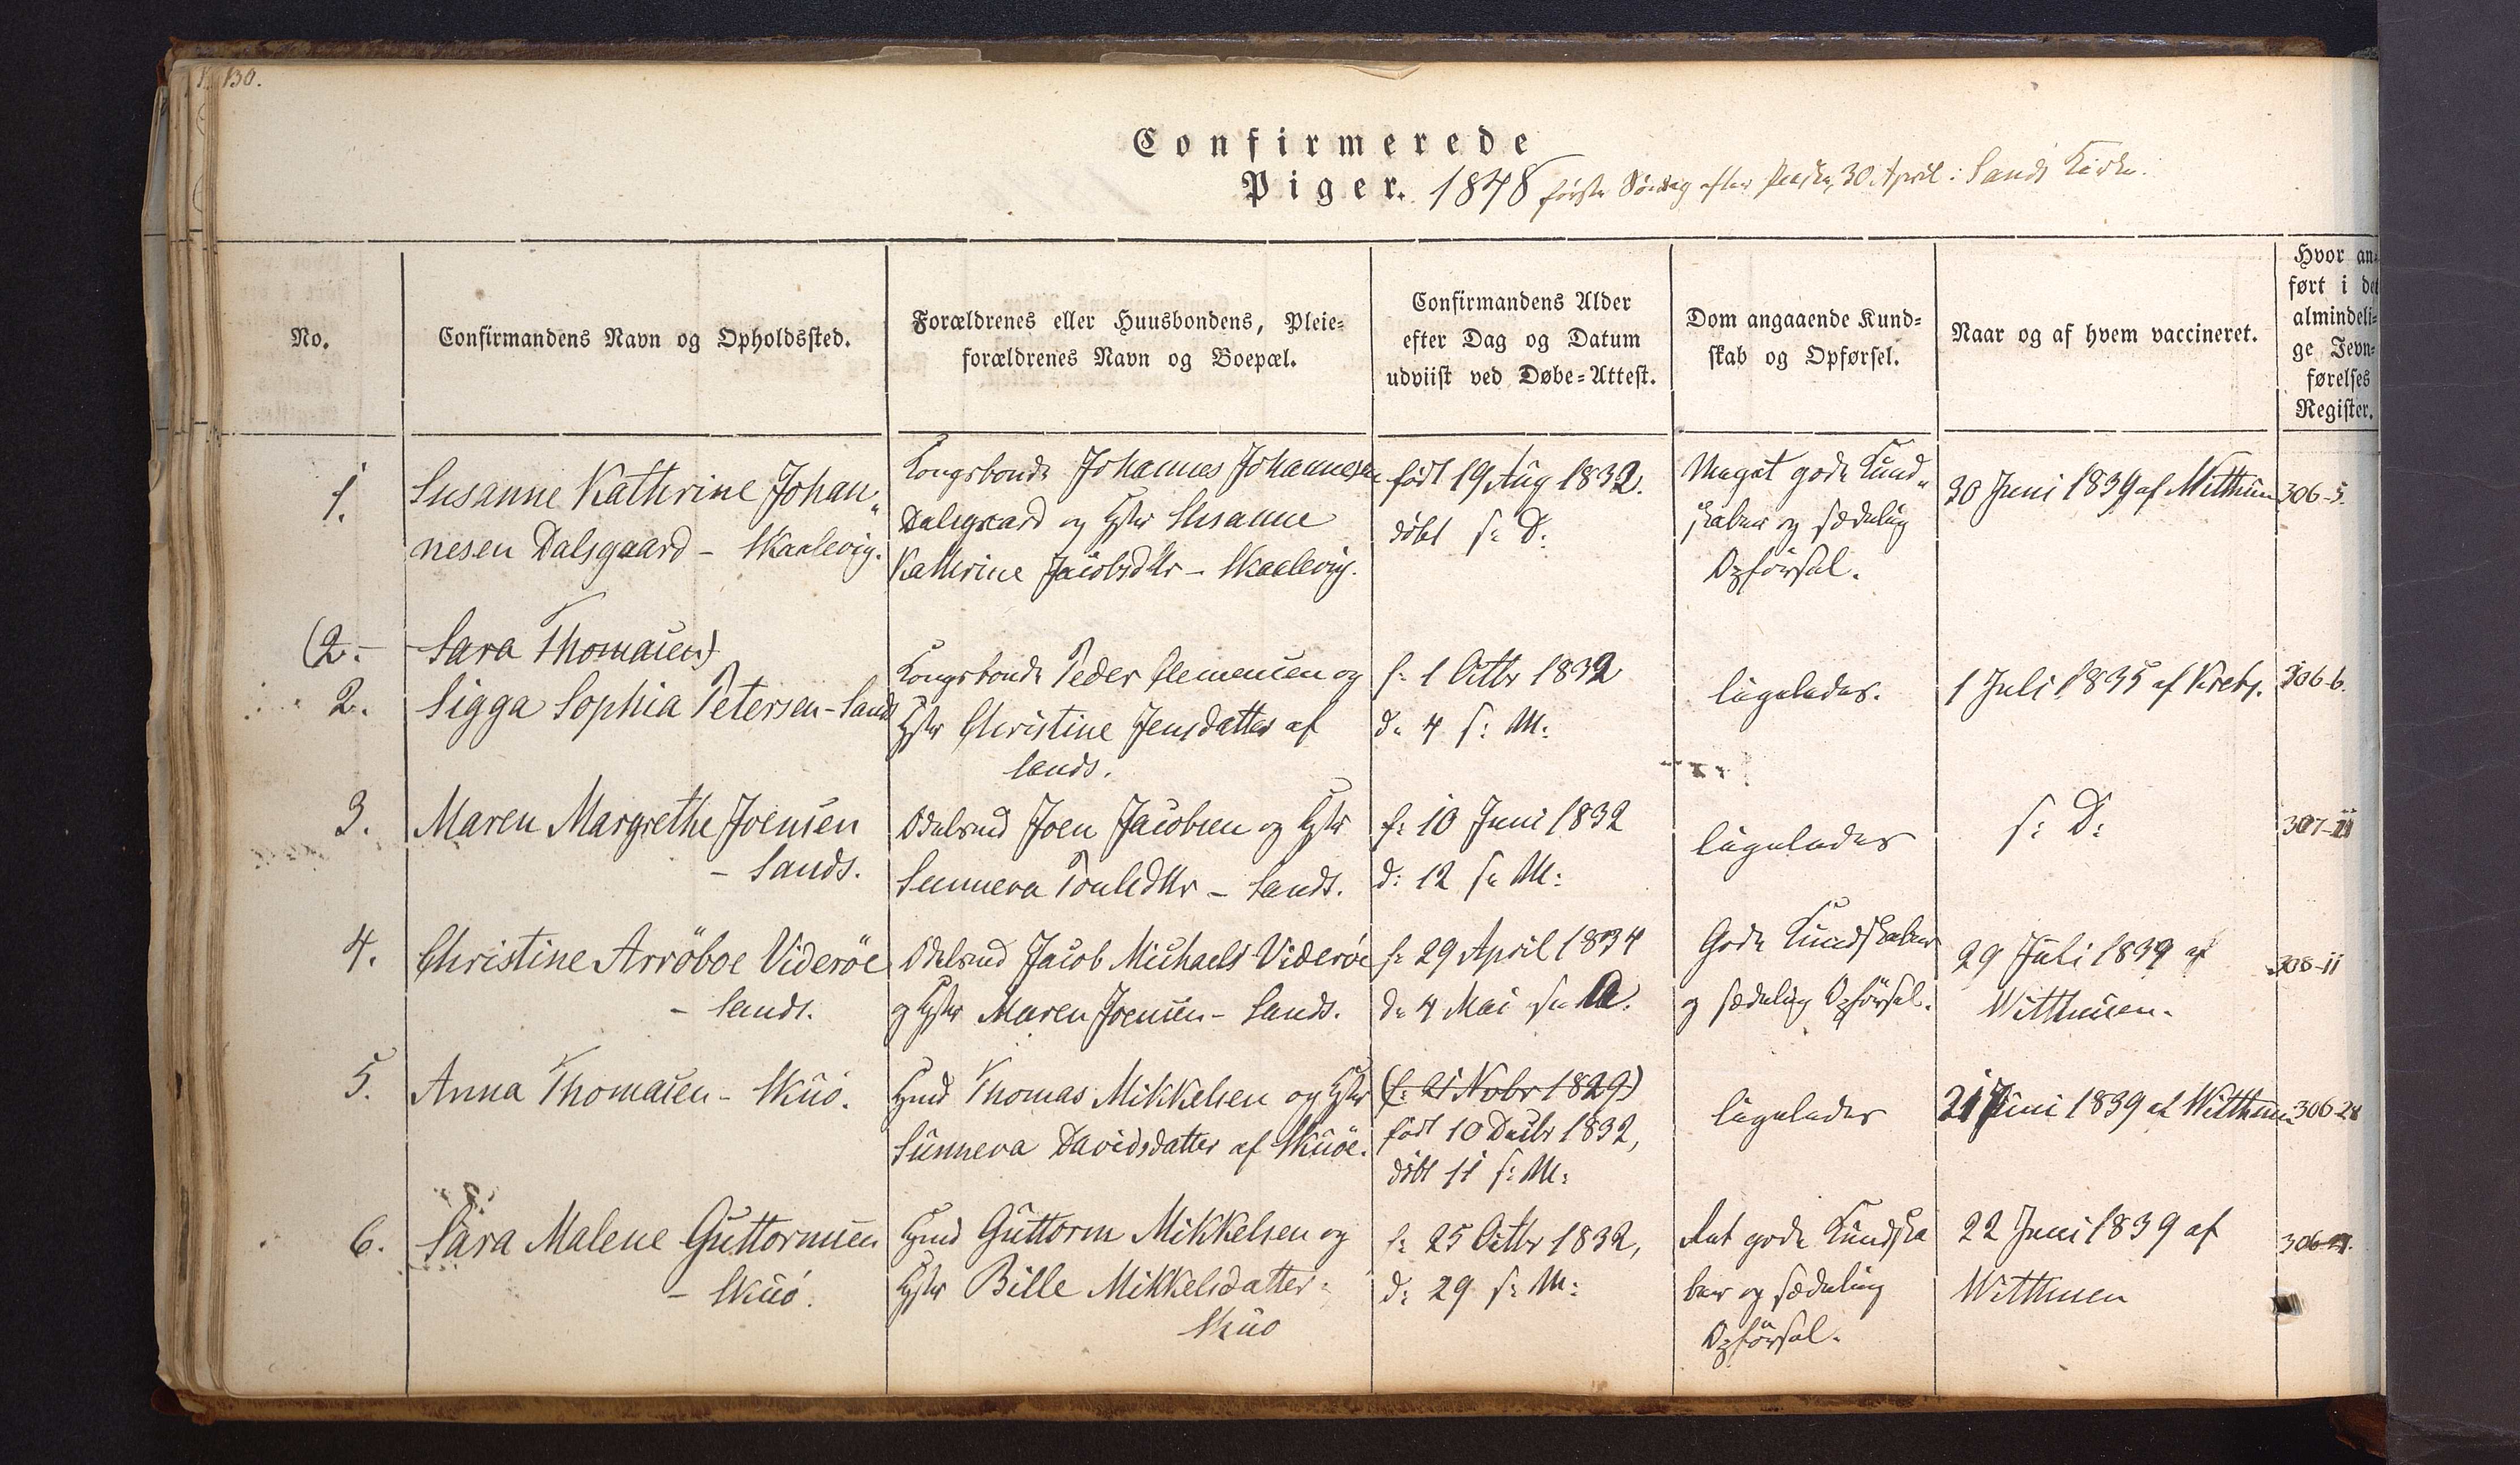 130.
Confirmerede
Piger. 1848 første Søndag efter Paaske, 30 April i Sands Kirke.
No.
Confirmandens Navn og Opholdssted.
Forældrenes eller Huusbondens, Pleie-
forældrenes Navn og Boepæl.
Confirmandens Alder
efter Dag og Datum
udviist ved Døbe-Attest.
Dom angaaende Kund-
skab og Opførsel.
Naar og af hvem vaccineret.
Hvor an-
ført i det
almindeli-
ge Jevn-
førelses
Register.
1.
Susanne Kathrine Johan„
nesen Dalsgaard - Skaalevig.
Kongsbonde Johannes Johannesen
Dalsgaard og Hstr Susanne
Kathrine Jacobsdttr - Skaalevig.
født 19 Aug 1832.
døbt s: D:
Meget gode Kund„
skaber og sædelig
Opførsel.
30 Juni 1839 af Witthusen
306-5.
(2.- Sara Thomasen)
2.
Sigga Sophia Petersen - Sands
Kongsbonde Peder Clemensen og
Hstr Christine Jensdatter af
Sands.
f: 1 Octbr 1832
d: 4 s: M:
ligeledes.
1 Juli 1835 af Krebs.
306-6.
3.
Maren Margrethe Joensen
- Sands.
Odelsmd Joen Jacobsen og Hstr
Sunneva Poulsdttr - Sands.
f: 10 Juni 1832
d: 12 s: M:
ligeledes
s: D:
307-11
4.
Christine Arröboe Videröe
- Sands.
Odelsmd Jacob Michaels Videröe
og Hstr Maren Joensen - Sands.
f: 29 April 1834
d: 4 Mai s: A:
Gode Kundskaber
og sædelig Opførsel.
29 Juli 1839 af
Witthusen.
308-11
5.
Anna Thomasen - Skuö.
Hmd Thomas Mikkelsen og Hstr
Sunneva Davidsdatter af Skuöe.
(f: 21 Novbr 1829)
født 10 Decbr 1832,
døbt 11 s: M:
ligeledes
21 Juni 1839 af Witthusen
306-28
6.
Sara Malene Guttormsen
- Skuö.
Hmd Guttorm Mikkelsen og
Hstr Bille Mikkelsdatter -
Skuö
f: 25 Octbr 1832,
d: 29 s: M:
gode Kundska
ber og sædelig
Opførsel.
22 Juni 1839 af
Witthusen
306